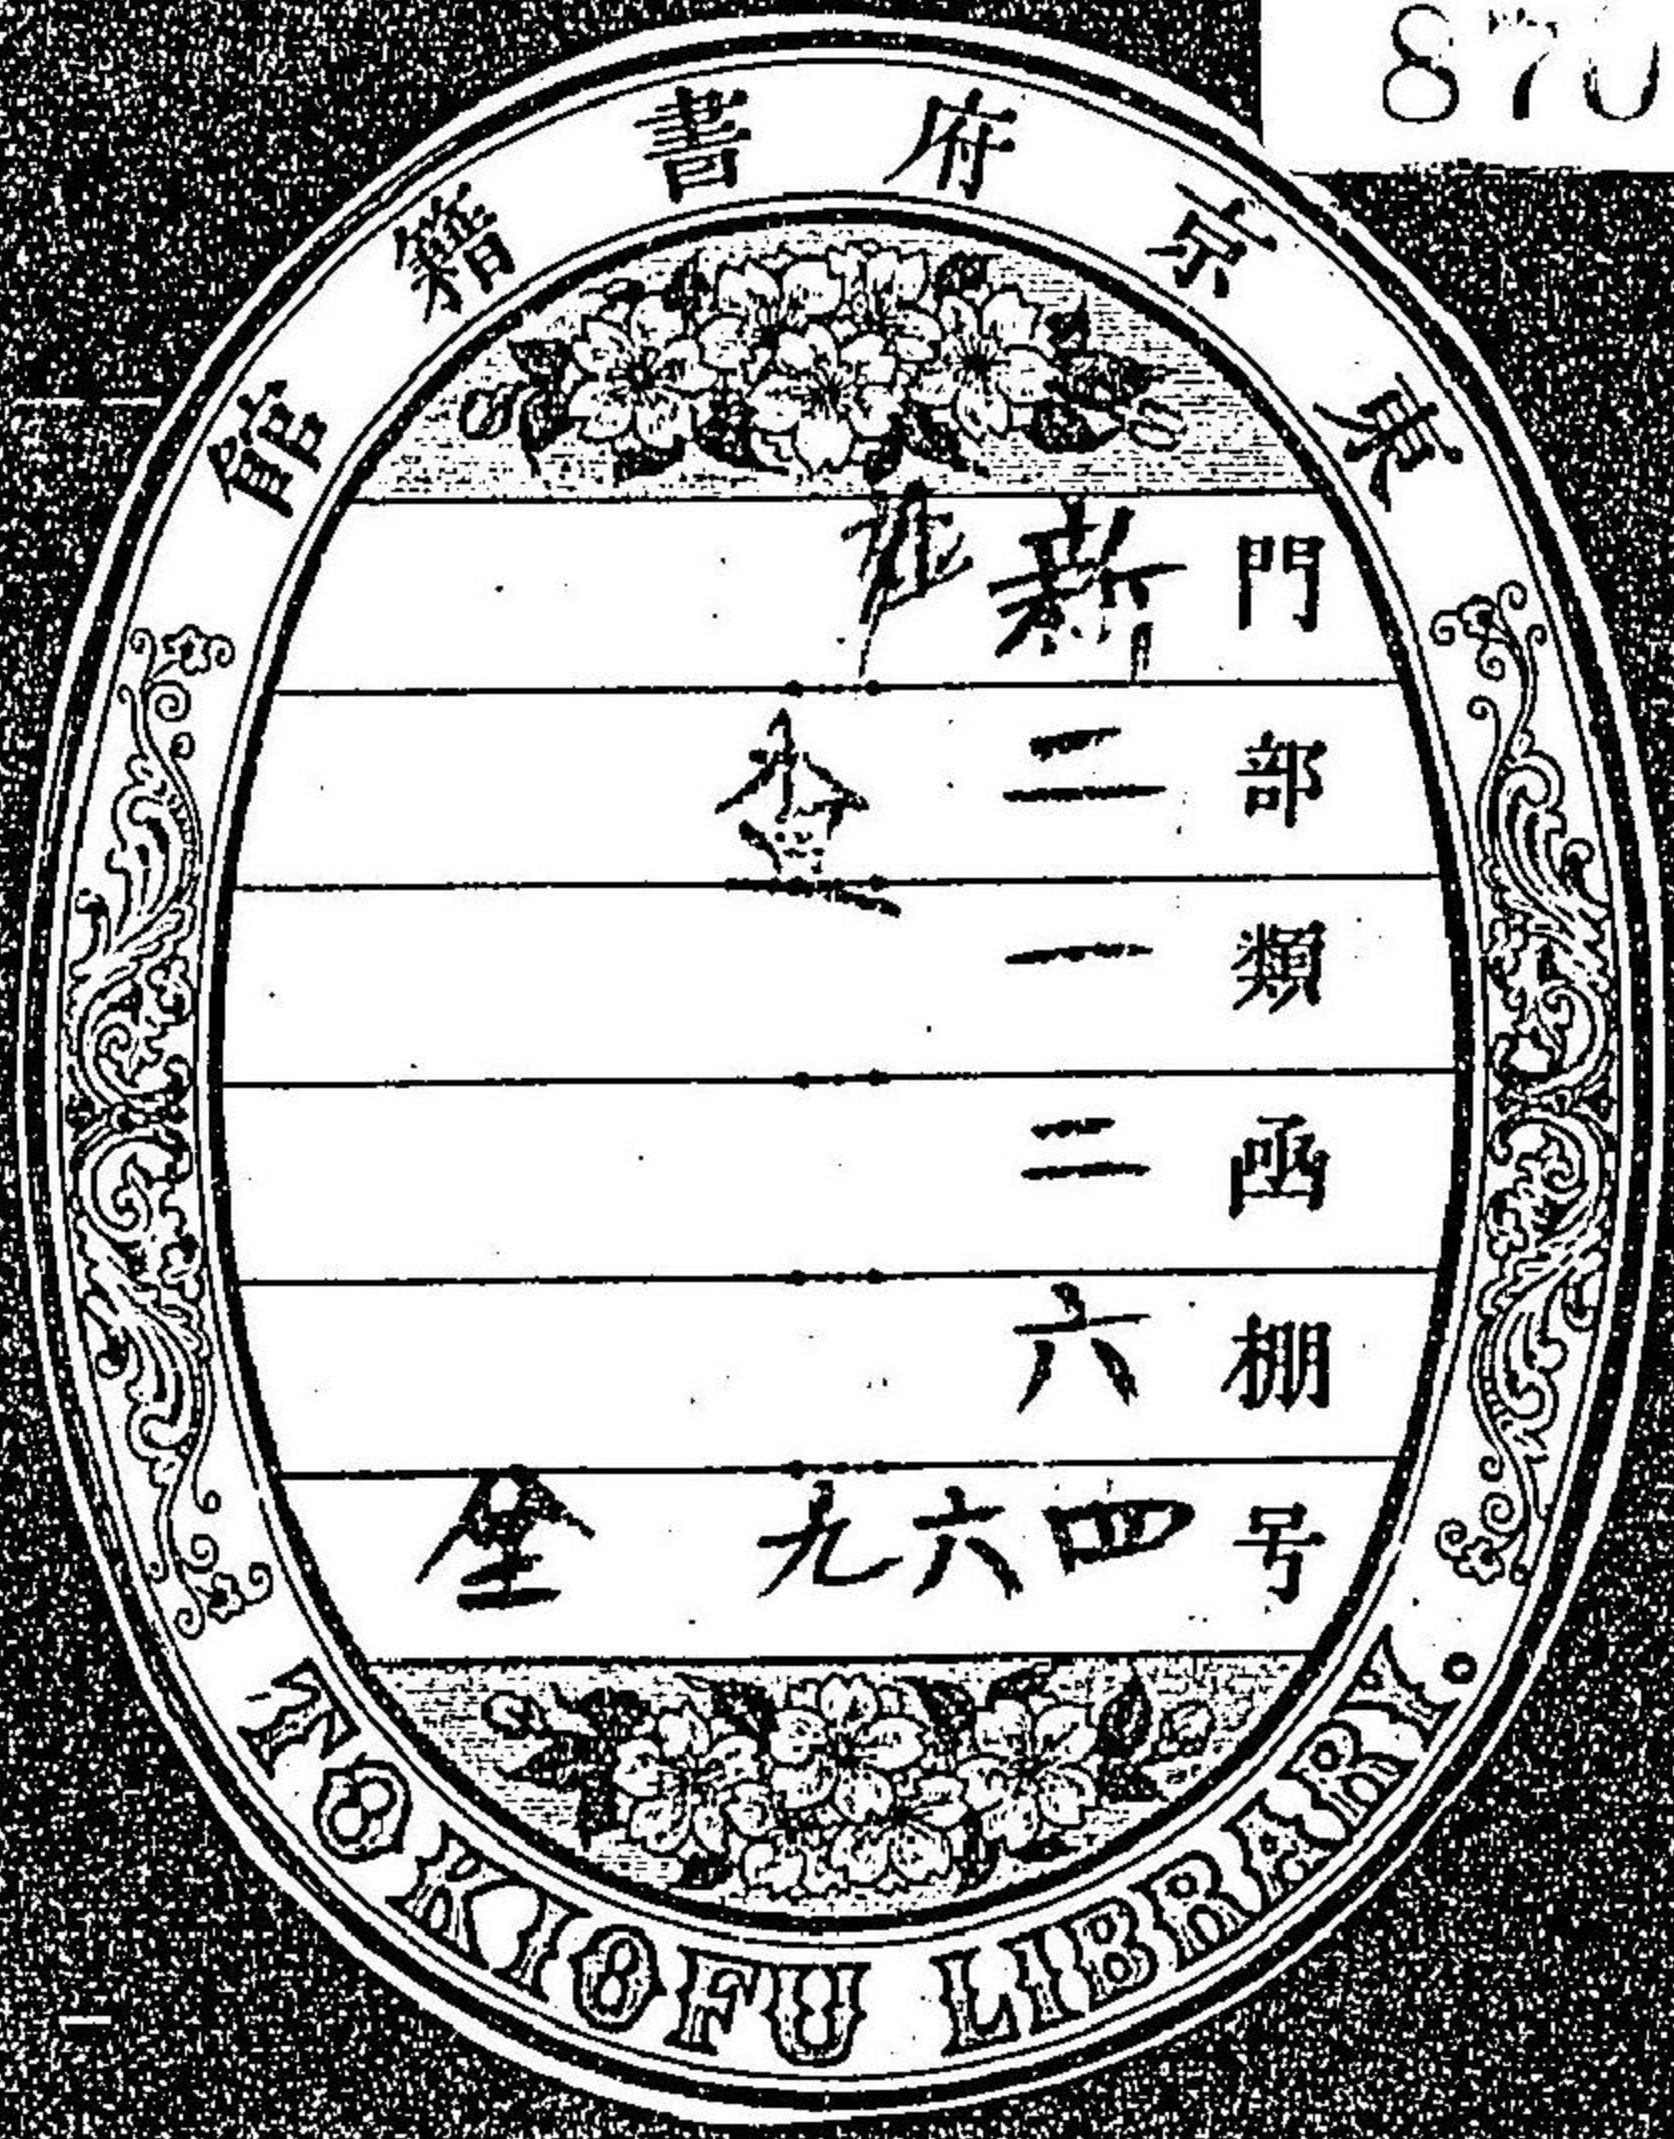 870
東京府書籍館
門 新
部 二
類 一
函 二
棚 六
号 四六九 全
TOKIOFU LIBRARY.